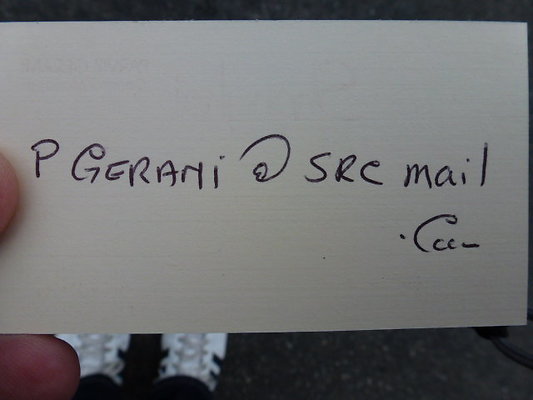 P GERANI @ SRC mail
.Com